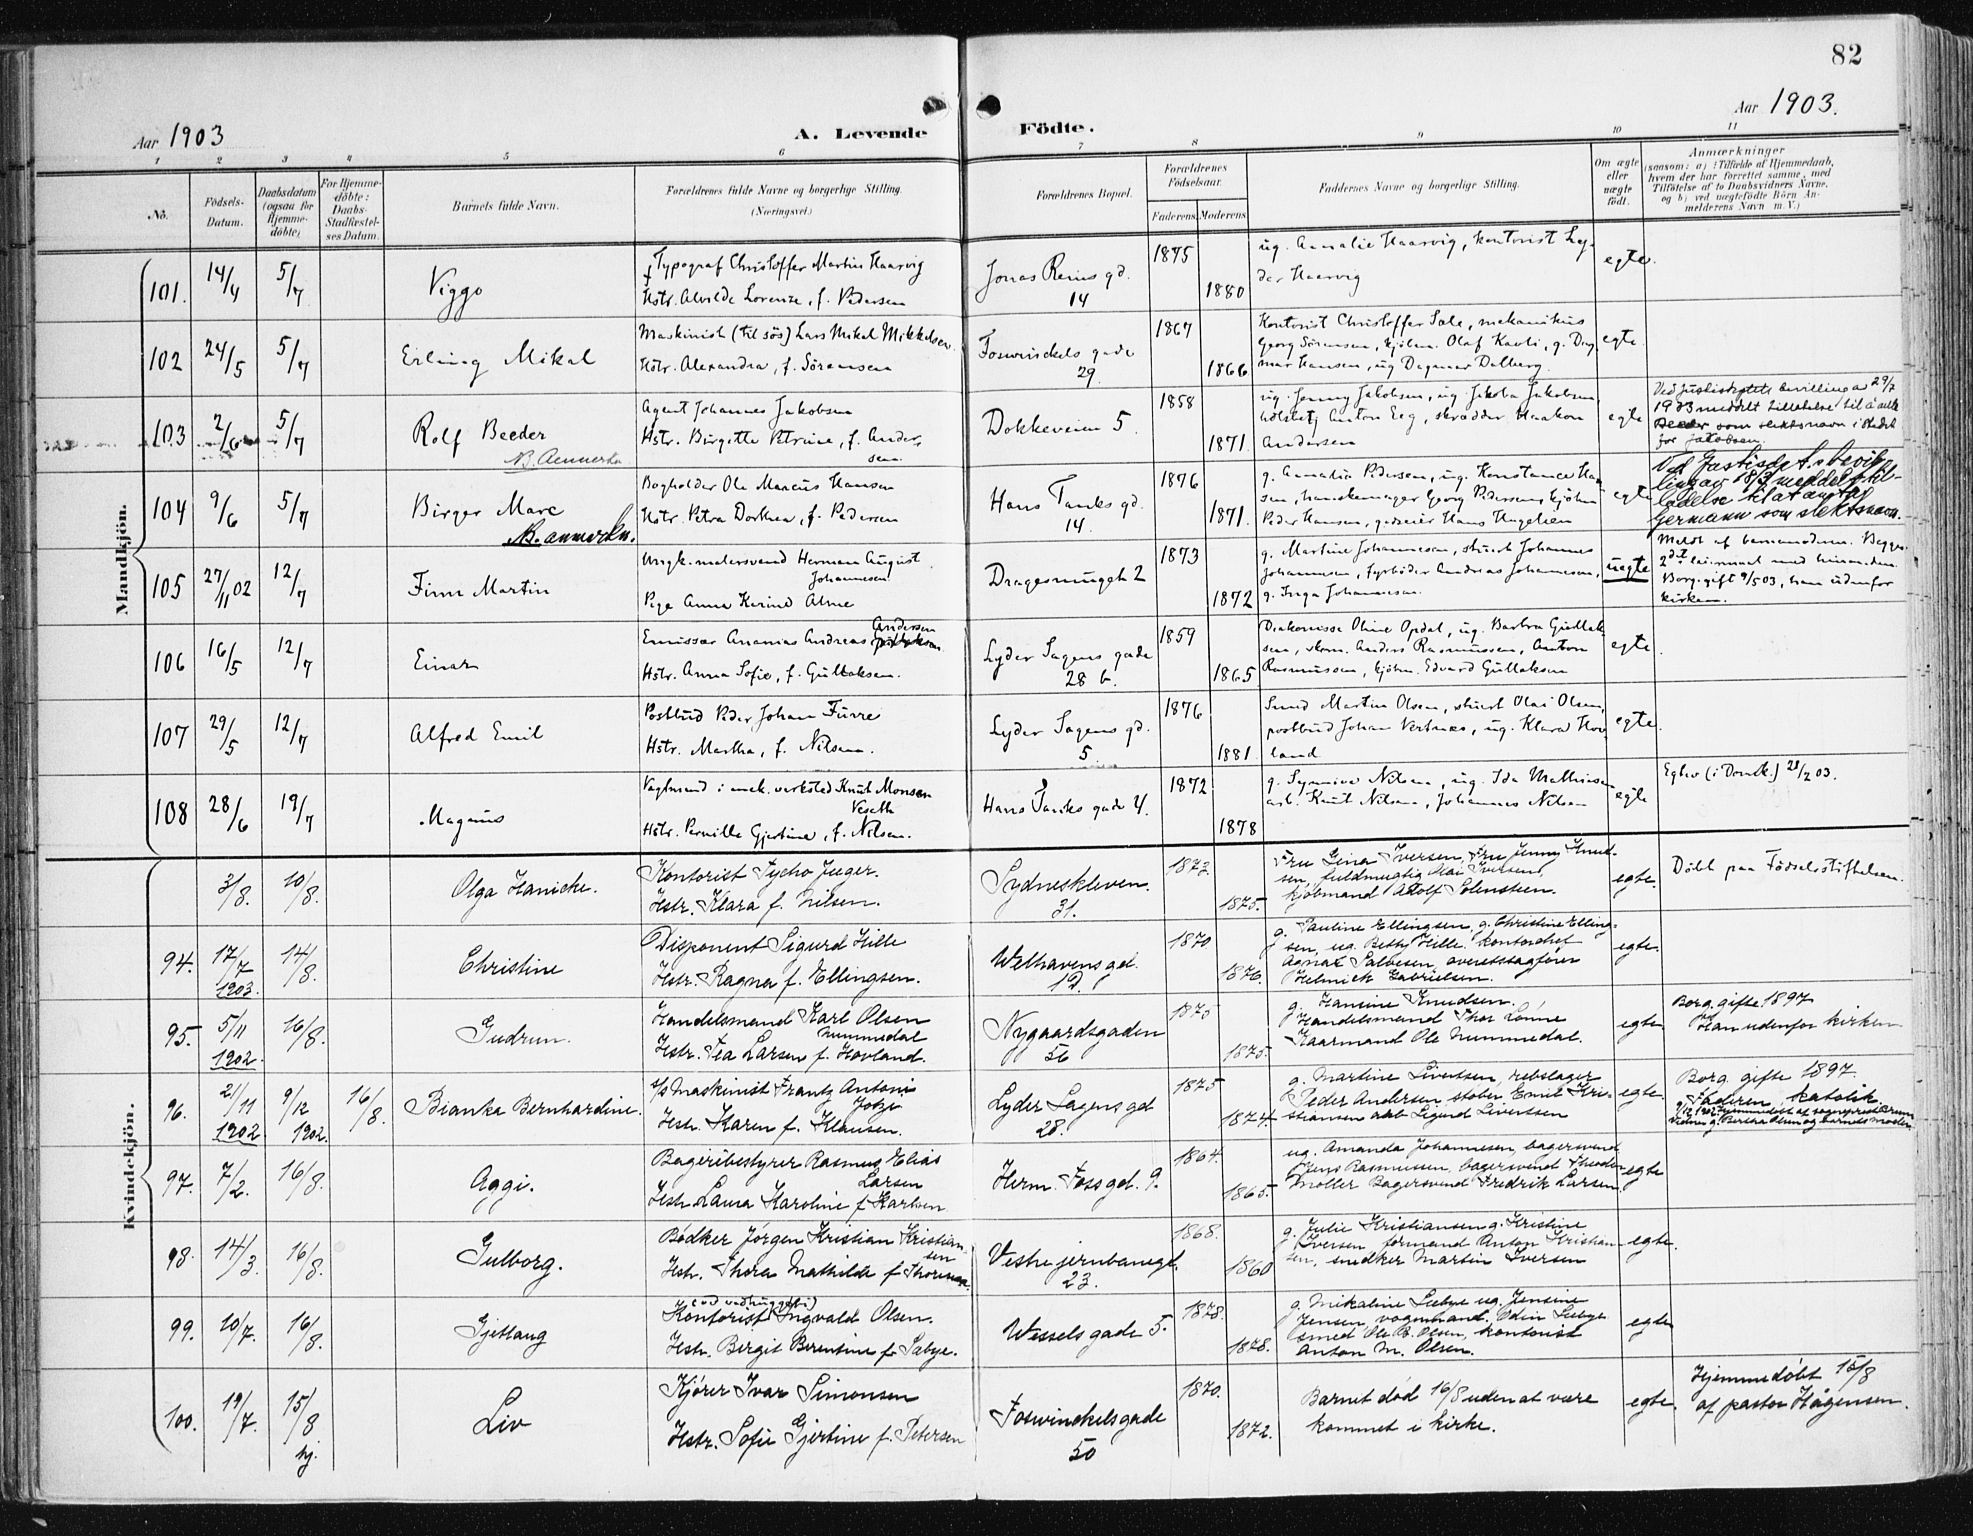 82
Aar 1903
A. Levende
Födte.
Aar 1903.
1 2 3 4 5 6 7 8 9 10 11
No.
Födsels-
Datum.
Daabsdatum
(ogsaa for
Hjemme-
döbte)
For Hjemme-
döbte:
Daabs-
Stadfæstel-
ses Datum.
Barnets fulde Navn.
Forældrenes fulde Navne og borgerlige Stilling.
(Næringsvei)
Forældrenes Bopæl.
Forældrenes
Födselsaar.
Faderens. Moderens.
Faddernes Navne og borgerlige Stilling.
Om ægte
eller
uægte
født.
Anmærkninger
(saasom: a) i Tilfælde af Hjemmedaab,
hvem der har forrettet samme, med
Tilföielse af to Daabsvidners Navne,
og b) ved uægtefödte Börn An-
melderens Navn m. V.)
Mandkjön.
101. 14/4 5/7 Viggo
Typograf Christoffer Martin Haarvig
Hstr. Alvilde Lorenze, f. Pedersen
Jonas Reins gd.
14
1875 1880
ug. Amalie Haarvig, kontorist Ly-
der Haarvig
egte.
102 24/5 5/7 Erling Mikal
Maskinist (til sös) Lars Mikal Mikkelsen.
Hstr. Alexandra, f. Sörensen
Foswinckels gade
29.
1867 1866
Kontorist Christoffer Sale, mekanikus
Georg Sörensen, kjöbm. Olaf Kavli, g. Dag-
mar Hansen, ug Dagmar Dalberg.
egte.
103 2/6 5/7 Rolf Beeder
N.B. Anmerkn
Agent Johannes Jakobsen
Hstr. Birgitte Petrine, f. Ander-
sen.
Dokkeveien 5.
1858 1871.
ug. Jenny Jakobsen, ug. Jakoba Jakobsen
Anton Eeg, skrædder Haakon
Andersen
egte
Ved Justisdptets bevilling av 29/7
1903 meddelt tilladelse til å anta
Beeder som slektsnavn i stedet
for Jakobsen.
104 9/6 5/7 Birger Marc
N.B. anmerkn.
Bogholder Ole Marcus Hansen
Hstr. Petra Dorthea, f. Pedersen
Hans Tanks gd.
14.
1876 1871.
g. Amalia Pedersen, ug. Konstance Han-
sen, hanskemager Georg Pedersen, kjöbm
Peder Hansen, gadeeier Hans Engelsen
egte
Ved Justisdet.s bevil-
ling av 18/3 meddelt til-
ladelse til at anta
Germann som slektsnavn.
105 27/11 02 12/7 Finn Martin
Ungk. malersvend Herman August
Johannesen
Pige Anna Kerine Alme
Dragesmuget 2
1873 1872
g. Martine Johannesen, stuert Johannes
Johannesen, fyrböder Andreas Johannesen,
g. Inga Johannesen.
uegte
Meldt af barnemoderen. Begges
2det leiermaal med hinanden.
Borg. gift 9/5 03, han udenfor
kirken.
106 16/5 12/7 Einar
Emissær Ananias Andreas Andersen
Hstr. Anna Sofie, f. Gullaksen.
Lyder Sagens gade
28 b.
1859 1865
Diakonisse Oline Opdal, ug. Barbra Gullak-
sen, skom. Anders Rasmussen, Anton
Rasmussen, kjöbm. Edvard Gullaksen
egte.
107 29/5 12/7 Alfred Emil
Postbud Peder Johan Furre
Hstr. Martha, f. Nilsen.
Lyder Sagens gd.
5
1876 1881
Martin Olsen, stuert Olai Olsen,
postbud Johan Vertnes, ug. Klara Hov-
land
egte.
108 28/6 19/7 Magnus
Vagtmand i mek. verksted Knut Monsen
Veseth
Hstr. Pernille Gjertine, f. Nilsen.
Hans Tanks gade 4.
1872 1878
g. Synnive Nilsen, ug. Ida Mathiesen
arb. Knut Nilsen, Johannes Nilsen
egte
Egtev (i Domk.) 28/2 03.
Kvindekjön.
3/8. 10/8. Olga Hanicke.
Kontorist Tycho Jæger.
Hstr. Klara f. Nilsen.
Sydneskleven.
31.
1873. 1875.
Fru Gina Iversen, Fru Jenny Knut-
sen, fuldmægtig Mai Iversen
kjöbmand Adolf Solensteen.
egte.
Döbt paa Födselsstiftelsen.
94. 17/7 1903. 14/8. Christine
Disponent Sigurd Hille
Hstr. Ragna f. Ellingsen.
Welhavens gd.
12.
1870 1876.
g. Pauline Ellingsen, g. Christine Elling-
sen, ug. Betsy Hille. kontorchef
Agnat Salvesen, overretssagförer
Helmick Gabrielsen.
egte.
95. 5/11 1902. 16/8. Gudrun.
Handelsmand Karl Olsen
Nummedal
Hstr. Tea Larsen f. Hovland.
Nygaardsgaden
56
1875 1875.
g. Hansine Knudsen.
Handelsmand Thor Lönne
Kaarmand Ole Nummedal.
egte.
Borg. gifte 1897
Han udenfor kirken
96. 21/11 1902 9/12 1902. 16/8. Bianka Bernhardine.
s/s Maskinist Frantz Antoni
Jotzi
Hstr. Karen f. Klausen.
Lyder Sagens gd
28.
1875 1874.
g. Martine Sivertsen, rebslager
Peder Andersen stöber Emil Kris-
tiansen arb Sigurd Sivertsen
egte.
Borg. gifte 1897.
Faderen katolik.
9/12 1902 hjemmedöbt af sogneprest Brun
Vidner g. Bertha Olsen og barnets moder.
97. 7/2. 16/8. Aggi.
Bageribestyrer Rasmus Elias
Larsen
Hstr. Laura Karoline f. Karlsen
Herm. Foss gd. 9.
1864. 1865.
ug. Amanda Johannesen, bagersvend
Jens Rasmussen, bagersvend Theodor
Möller Bagersvend Fredrik Larsen.
egte
98. 14/3. 16/8. Gulborg.
Bødker Jörgen Kristian Kristian-
sen
Hstr. Thora Mathilde f. Thorsen.
Vestre jernbanegt.
23.
1868. 1860
g. Julie Kristiansen g. Kristine
Iversen, formand Anton Kristian-
sen, snedker Martin Iversen
egte.
99. 10/7. 16/8. Gjetlaug
(ved vedhuggeri)
Kontorist Ingvald Olsen.
Hstr. Birgit Berentine f. Sæbye.
Wessels gade 5.
1878. 1878.
g. Mikaline Sæbye ug. Jensine
Jensen, vognmand. Odin Sæbye
smed Ole B. Olsen, kontorist
Anton M. Olsen.
egte
100. 19/7. 15/8 hj. Liv
Kjörer Ivar Simonsen
Hstr. Sofie Gjertine f. Petersen
Foswinckelsgade
50
1870. 1872.
Barnet död 16/8 uden at være
kommet i kirke.
egte.
Hjemmedöbt 15/8
af pastor Hågensen.